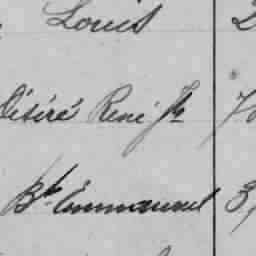 Louis 2
Désiré René Jh 7
Bte Emmanuel 3,